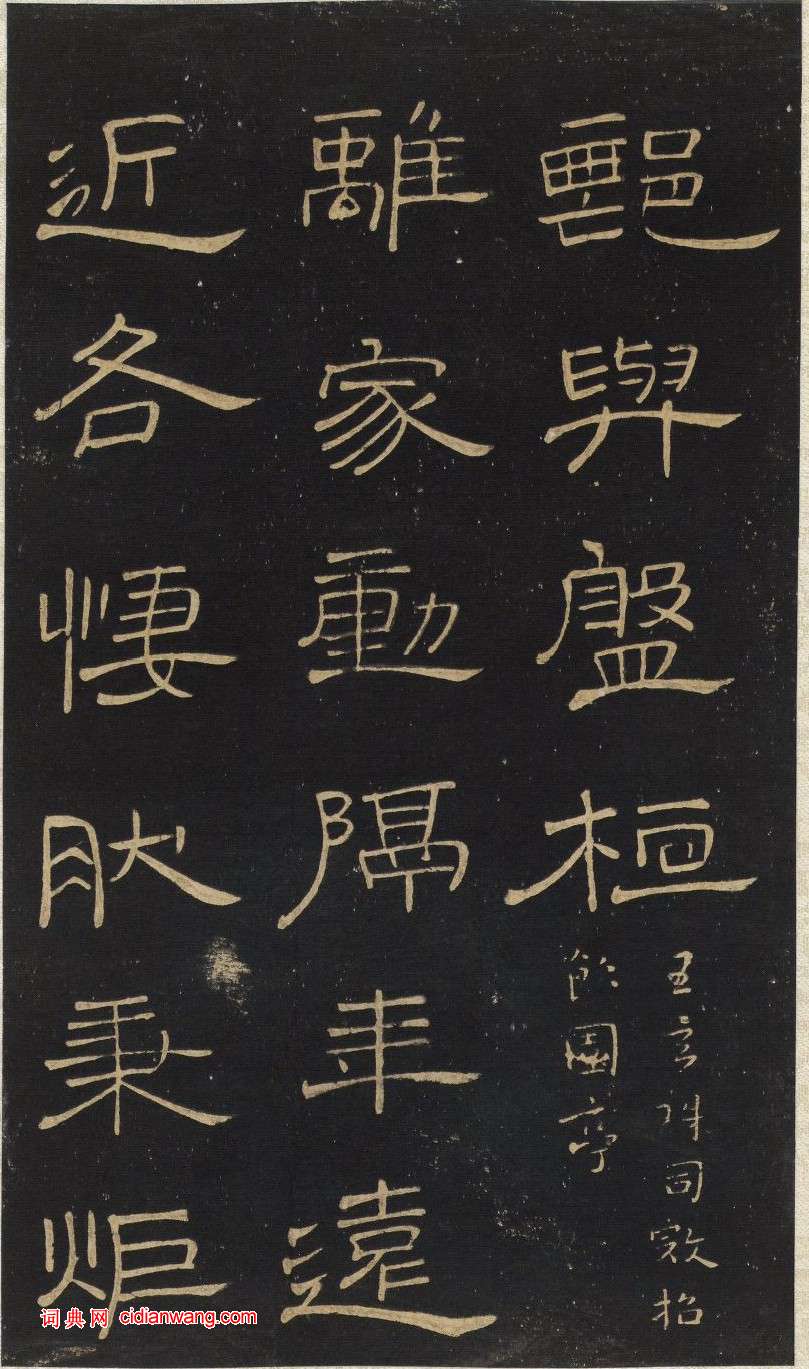 與盤桓
五言 同 招
飲園亭
離家動隔年遠
近各悽肰秉炬
词典网 cidianwang.com